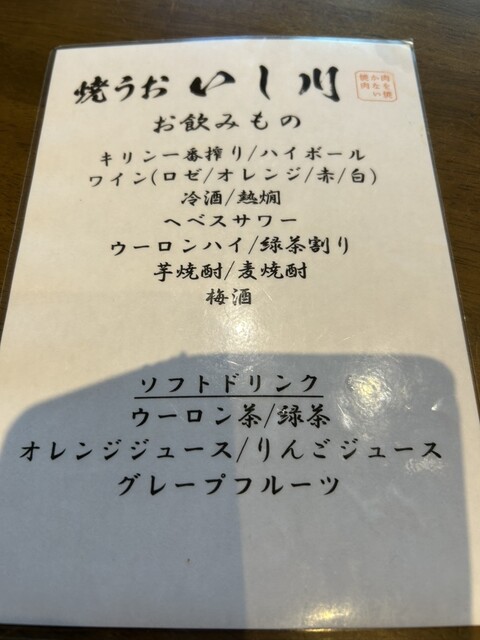 焼うおいし川
肉を焼
かない
焼肉
お飲みもの
キリン一番搾り/ハイボール
ワイン(ロゼ/オレンジ/赤/白)
冷酒/熱燗
ヘベスサワー
ウーロンハイ/緑茶割り
芋焼酎/麦焼酎
梅酒
ソフトドリンク
ウーロン茶/緑茶
オレンジジュース/りんごジュース
グレープフルーツ